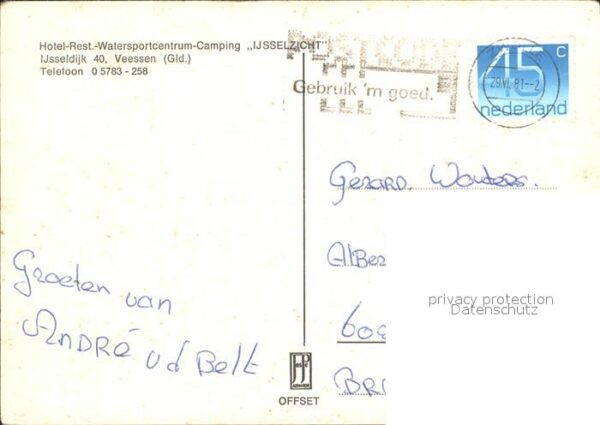 Hotel-Rest.-Watersportcentrum-Camping „IJSSELZICHT"
IJsseldijk 40, Veessen (Gld.)
Telefoon 0 5783 - 258
POSTCODE
Gebruik 'm goed.
29.VI.81.-2
45 c
nederland
Gerard. Wouters.
Alber
privacy protection
Datenschutz
Groeten van
André vd Belt
BR
OFFSET